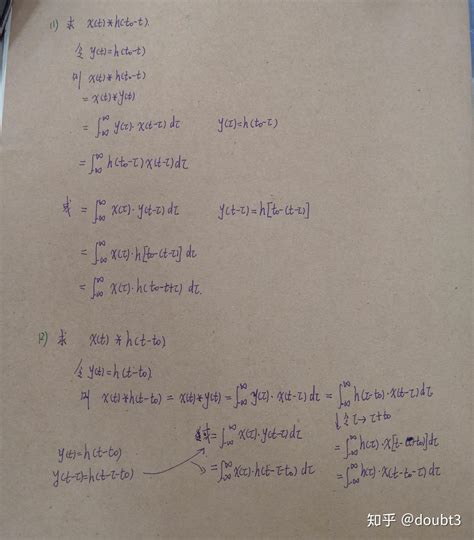 (1) 求 x(t)*h(t₀-t).
令 y(t)=h(t₀-t)
则 x(t)*h(t₀-t)
= x(t)*y(t)
= ∫_{-∞}^{∞} y(τ)·x(t-τ)dτ    y(τ)=h(t₀-τ)
= ∫_{-∞}^{∞} h(t₀-τ)x(t-τ)dτ
或 = ∫_{-∞}^{∞} x(τ)·y(t-τ)dτ    y(t-τ)=h[t₀-(t-τ)]
= ∫_{-∞}^{∞} x(τ)·h[t₀-(t-τ)]dτ
= ∫_{-∞}^{∞} x(τ)·h(t₀-t+τ)dτ.
(2) 求 x(t)*h(t-t₀).
令 y(t)=h(t-t₀).
则 x(t)*h(t-t₀) = x(t)*y(t) = ∫_{-∞}^{∞} y(τ)·x(t-τ)dτ = ∫_{-∞}^{∞} h(τ-t₀)·x(t-τ)dτ
↓ 令 τ→τ+t₀
或 = ∫_{-∞}^{∞} x(τ)·y(t-τ)dτ    = ∫_{-∞}^{∞} h(τ)·x[t-(τ+t₀)]dτ
y(t)=h(t-t₀)
y(t-τ)=h(t-τ-t₀)    = ∫_{-∞}^{∞} x(τ)·h(t-τ-t₀)dτ    = ∫_{-∞}^{∞} h(τ)·x(t-t₀-τ)dτ
知乎 @doubt3